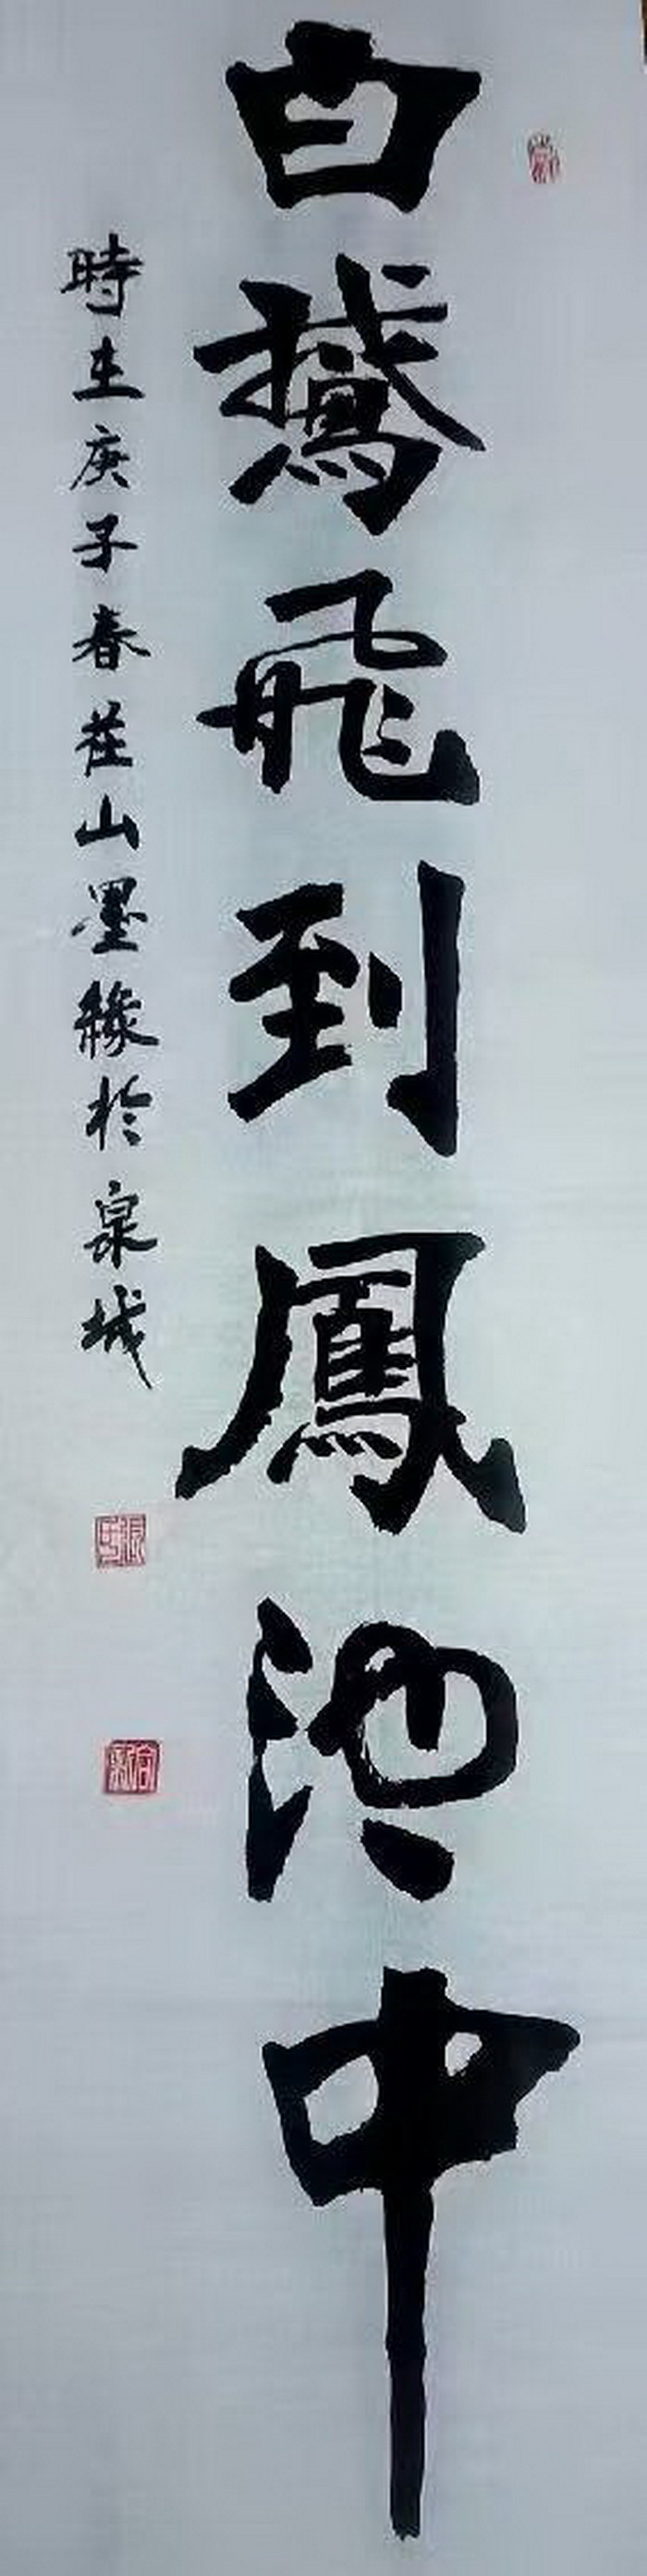 白鵝飛到鳳池中
時在庚子春茬山墨緣於泉城